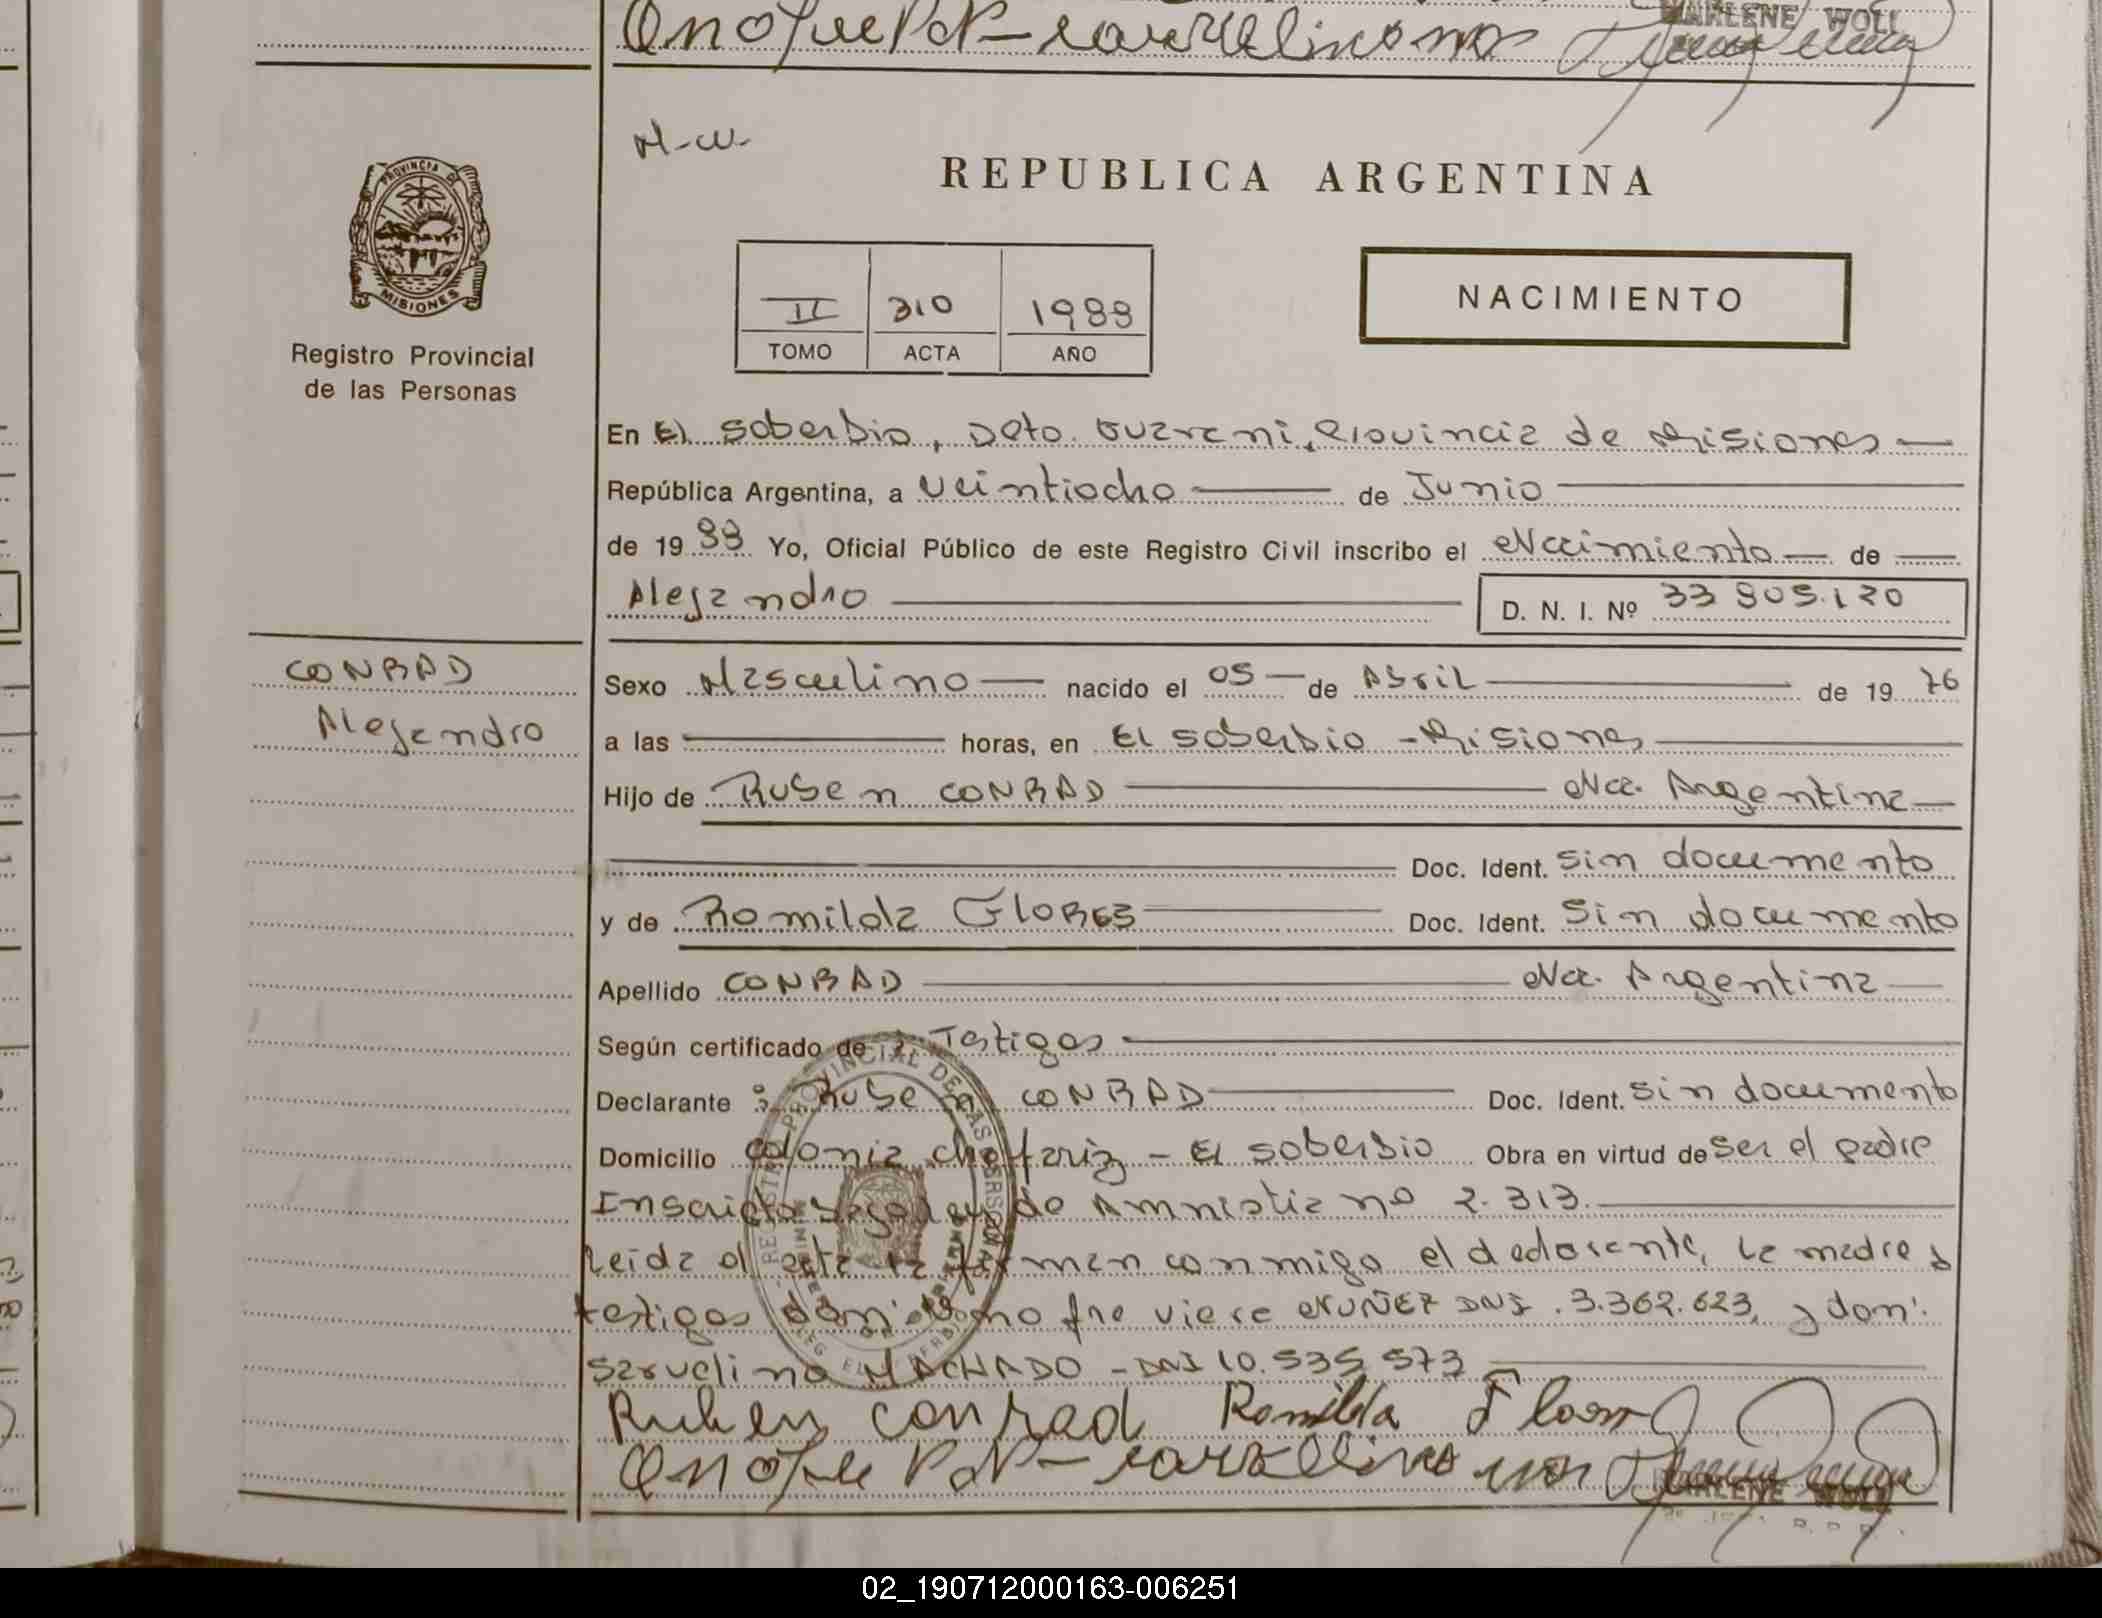 MARLENE WOLL
M-W-
PROVINCIA DE
MISIONES
Registro Provincial
de las Personas
REPUBLICA ARGENTINA
II 310 1988
TOMO ACTA AÑO
NACIMIENTO
En El soberbio, Dpto. Guarani, Provincia de Misiones —
República Argentina, a veintiocho — de Junio —
de 19 88 Yo, Oficial Público de este Registro Civil inscribo el Nacimiento — de —
Alejandro —
D. N. I. Nº 33 905.120
CONRAD
Alejandro
Sexo Masculino — nacido el 05 — de Abril — de 19 76
a las — horas, en El soberbio - Misiones —
Hijo de Ruben CONRAD — Nac. Argentina —
— Doc. Ident. sin documento
y de Romilda FLORES — Doc. Ident. sin documento
Apellido CONRAD — Nac. Argentina —
Según certificado de 2 Testigos —
Declarante : Ruben CONRAD — Doc. Ident. sin documento
Domicilio colonia chafariz - El soberbio Obra en virtud de ser el padre
Inscripto Ley de Amnistia no 2.313. —
Leida el acta la firman conmigo el declarante, la madre y
testigos NUÑEZ DNI. 3.362.623, y don:
saruelino MACHADO - DNI 10.535 573 —
Ruben Conrad Romilda Flores
MARLENE WOLL
02_190712000163-006251